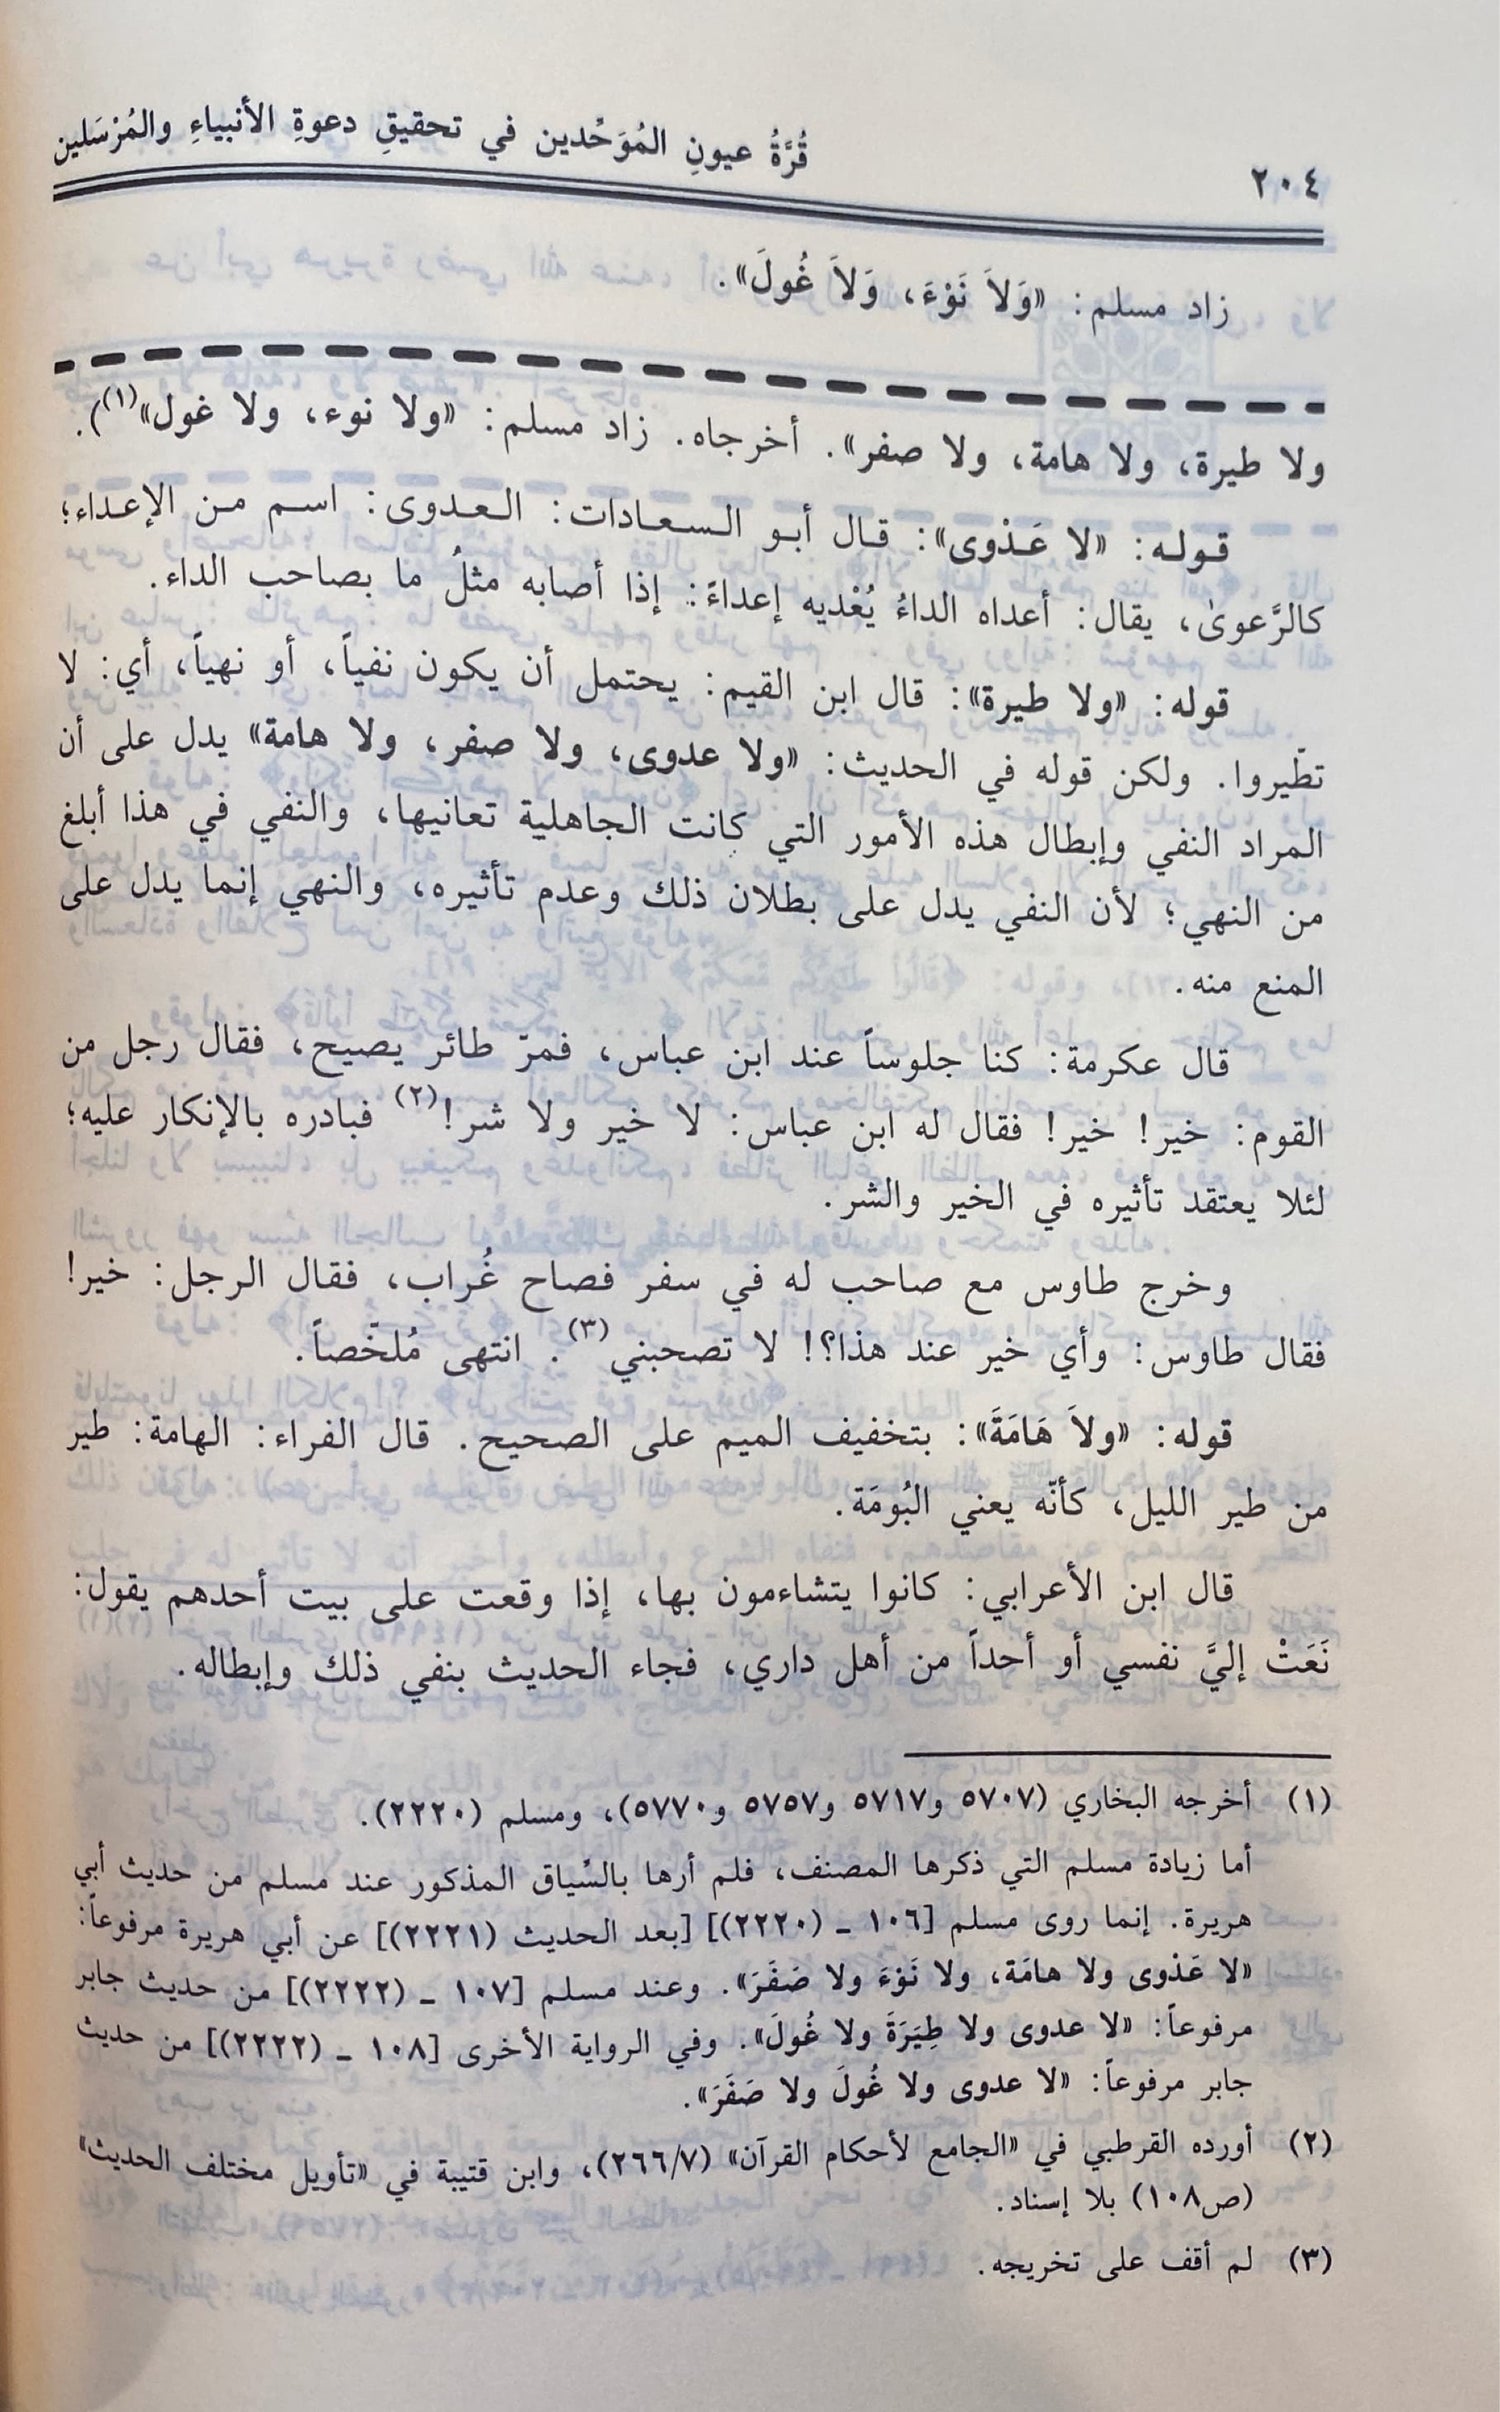 ٢٠٤
قُرَّةُ عيونِ المُوَحِّدين في تحقيقِ دعوةِ الأنبياءِ والمُرْسَلين
زاد مسلم: «وَلاَ نَوْءَ، وَلاَ غُولَ».
ولا طيرة، ولا هامة، ولا صفر». أخرجاه. زاد مسلم: «ولا نوء، ولا غول»(١)).
قوله: «لا عَدْوى»: قال أبو السعادات: العدوى: اسم من الإعداء؛
كالرَّعوىٰ، يقال: أعداه الداءُ يُعْديه إعداءً: إذا أصابه مثلُ ما بصاحب الداء.
قوله: «ولا طيرة»: قال ابن القيم: يحتمل أن يكون نفياً، أو نهياً، أي: لا
تطّيروا. ولكن قوله في الحديث: «ولا عدوى، ولا صفر، ولا هامة» يدل على أن
المراد النفي وإبطال هذه الأمور التي كانت الجاهلية تعانيها، والنفي في هذا أبلغ
من النهي؛ لأن النفي يدل على بطلان ذلك وعدم تأثيره، والنهي إنما يدل على
المنع منه.
قال عكرمة: كنا جلوساً عند ابن عباس، فمرّ طائر يصيح، فقال رجل من
القوم: خير! خير! فقال له ابن عباس: لا خير ولا شر!(٢) فبادره بالإنكار عليه؛
لئلا يعتقد تأثيره في الخير والشر.
وخرج طاوس مع صاحب له في سفر فصاح غُراب، فقال الرجل: خير!
فقال طاوس: وأي خير عند هذا؟! لا تصحبني(٣). انتهى مُلخّصاً.
قوله: «ولاَ هَامَةَ»: بتخفيف الميم على الصحيح. قال الفراء: الهامة: طير
من طير الليل، كأنّه يعني البُومَة.
قال ابن الأعرابي: كانوا يتشاءمون بها، إذا وقعت على بيت أحدهم يقول:
نَعَتْ إليَّ نفسي أو أحداً من أهل داري، فجاء الحديث بنفي ذلك وإبطاله.
(١) أخرجه البخاري (٥٧٠٧ و٥٧١٧ و٥٧٥٧ و٥٧٧٠)، ومسلم (٢٢٢٠).
أما زيادة مسلم التي ذكرها المصنف، فلم أرها بالسِّياق المذكور عند مسلم من حديث أبي
هريرة. إنما روى مسلم [١٠٦ ـ (٢٢٢٠)] [بعد الحديث (٢٢٢١)] عن أبي هريرة مرفوعاً:
«لا عَدْوى ولا هامَة، ولا نَوْءَ ولا صَفَرَ». وعند مسلم [١٠٧ ـ (٢٢٢٢)] من حديث جابر
مرفوعاً: «لا عدوى ولا طِيَرَةَ ولا غُولَ». وفي الرواية الأخرى [١٠٨ ـ (٢٢٢٢)] من حديث
جابر مرفوعاً: «لا عدوى ولا غُولَ ولا صَفَرَ».
(٢) أورده القرطبي في «الجامع لأحكام القرآن» (٢٦٦/٧)، وابن قتيبة في «تأويل مختلف الحديث»
(ص١٠٨) بلا إسناد.
(٣) لم أقف على تخريجه.